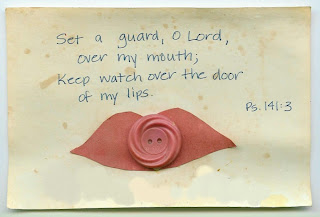 Set a guard, O Lord,
over my mouth;
Keep watch over the door
of my lips.
Ps. 141:3